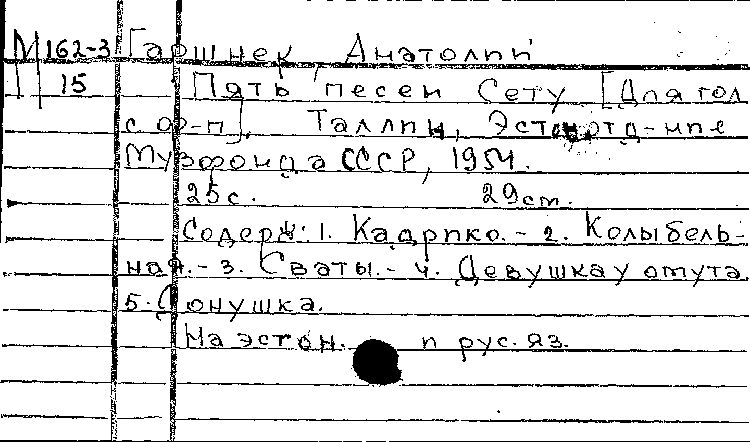 М 162-3 Гаршнек, Анатолий
15 Пять песен Сету [Для гол
с ор-п]. Таллин, Эстон отд-ние
Музфонда СССР, 1954.
25с. 29см.
Содерж: 1. Каарико. - 2. Колыбель-
ная. - 3. Сваты. - 4. Девушка у омута
5. Донушка.
На эстон. и рус. яз.